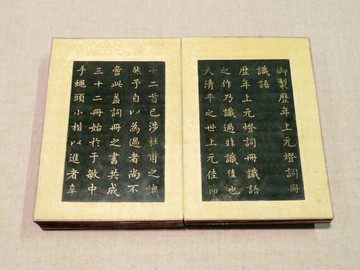 御製歷年上元燈詞冊
識語
歷年上元燈詞冊識語
之作乃識過非識佳也
大清平之世上元佳節
小二首已涉社甫之
然予自以為過者尚不
啻此蓋詞冊之書共成
三十二冊始於于敏中
手蠅頭小楷以進者辛